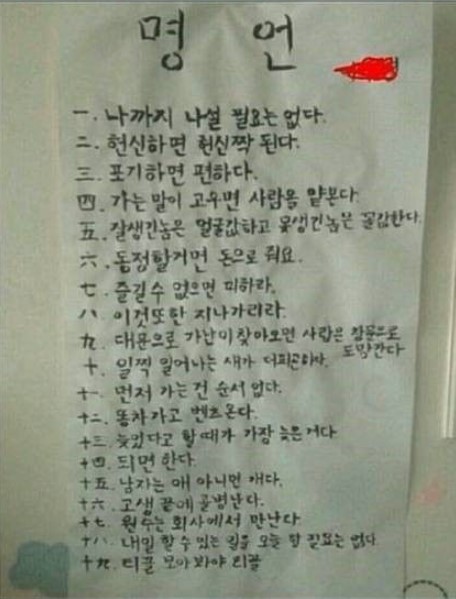 명언
一. 나까지 나설 필요는 없다.
二. 헌신하면 헌신짝 된다.
三. 포기하면 편하다.
四. 가는 말이 고우면 사람을 얕본다.
五. 잘생긴놈은 얼굴값하고 못생긴놈은 꼴값한다.
六. 동정할거면 돈으로 줘요.
七. 즐길수 없으면 피하라.
八. 이것또한 지나가리라.
九. 대문으로 가난이찾아오면 사람은 창문으로
도망간다
十. 일찍 일어나는 새가 더피곤하다.
十一. 먼저 가는건 순서 없다.
十二. 똥차가고 벤츠온다.
十三. 늦었다고 할때가 가장 늦은거다.
十四. 되면 한다.
十五. 남자는 애 아니면 개다.
十六. 고생 끝에 골병난다.
十七. 원수는 회사에서 만난다
十八. 내일 할수있는 일을 오늘 할 필요는 없다
十九. 티끌 모아 봐야 티끌